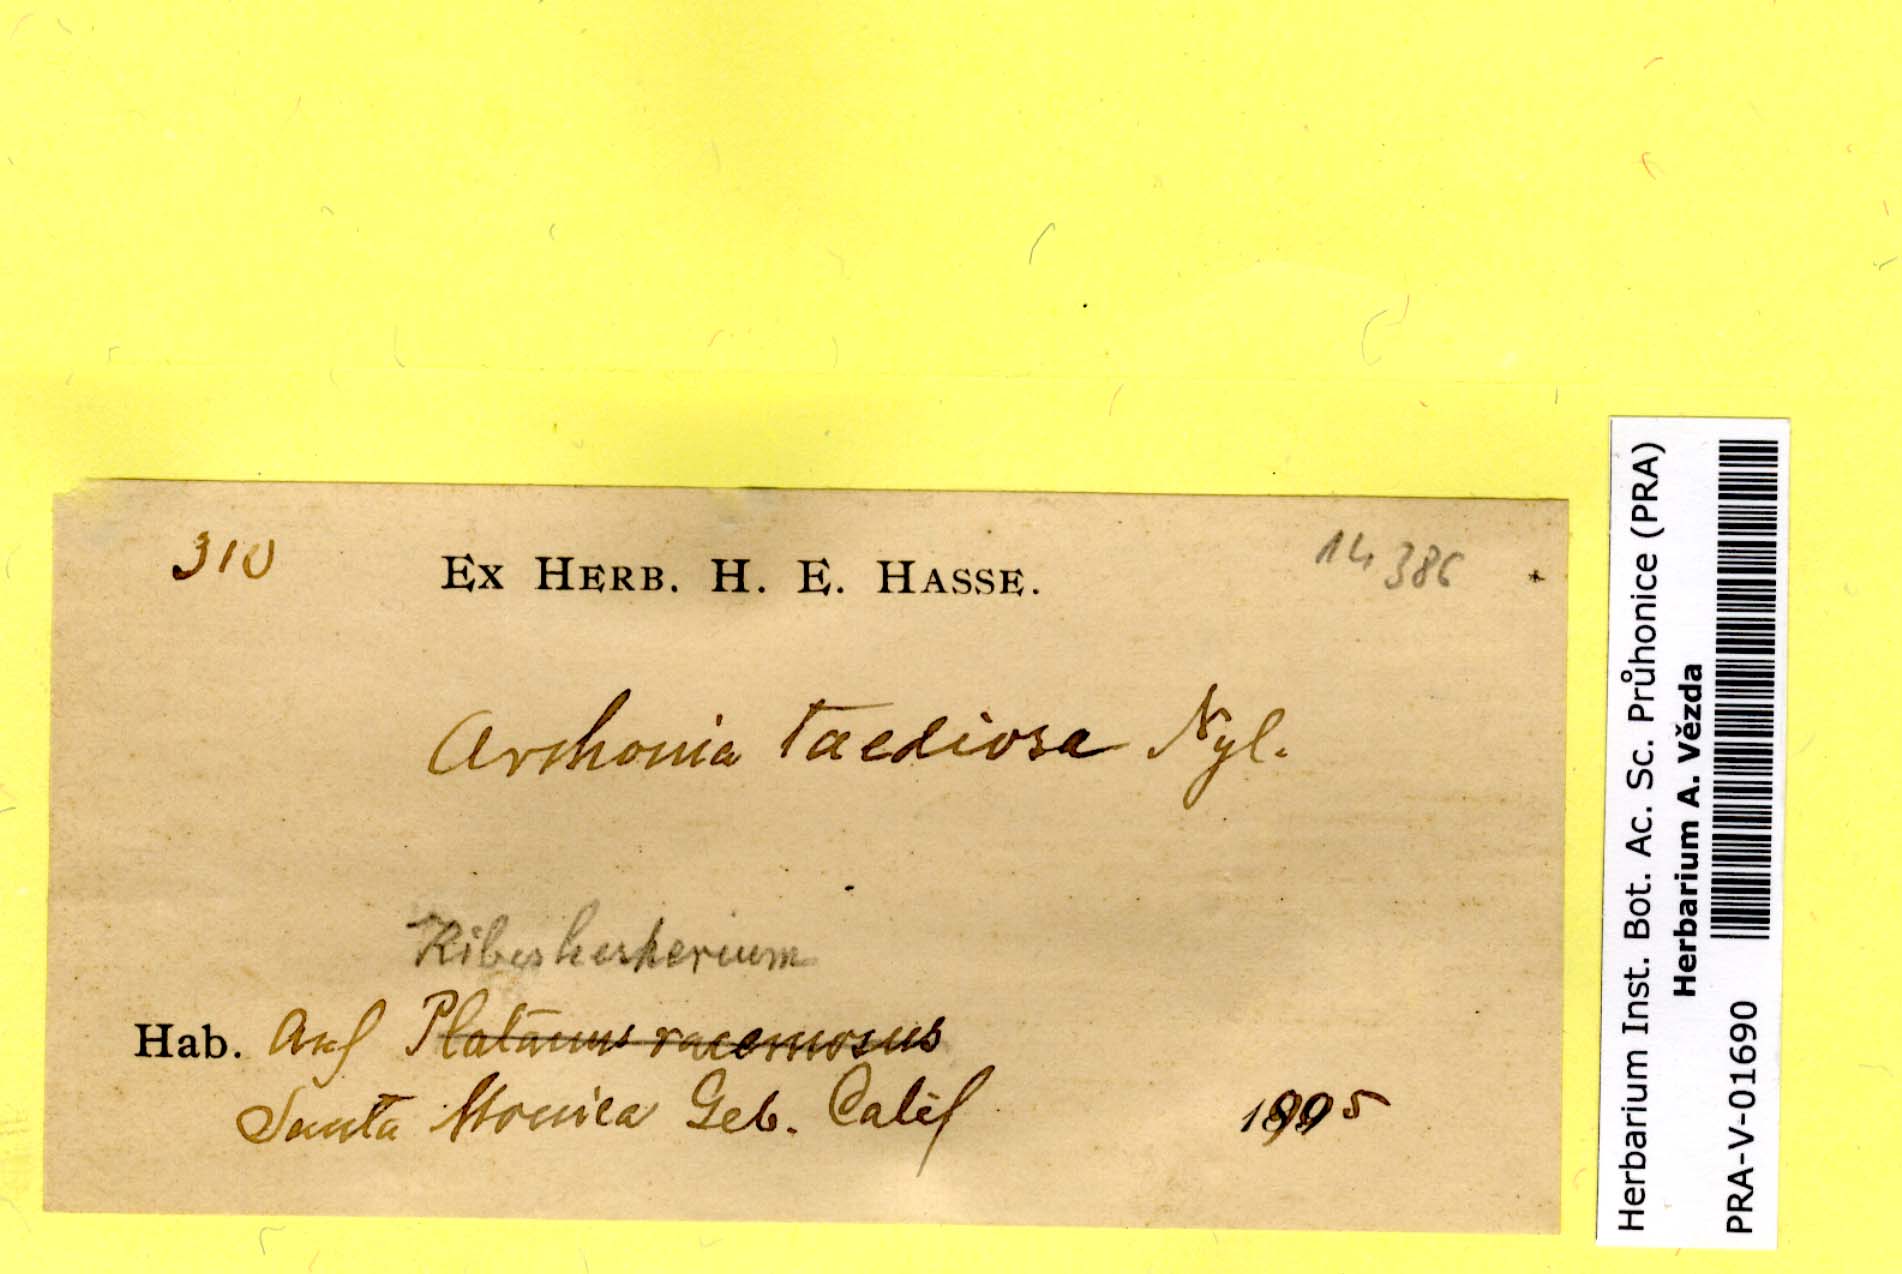 310
Ex Herb. H. E. Hasse.
14386
Arthonia taediosa Nyl.
Ribes hesperium
Hab. Auf Platanus racemosus
Santa Monica Geb. Calif
1895
Herbarium Inst. Bot. Ac. Sc. Průhonice (PRA)
Herbarium A. Vězda
PRA-V-01690